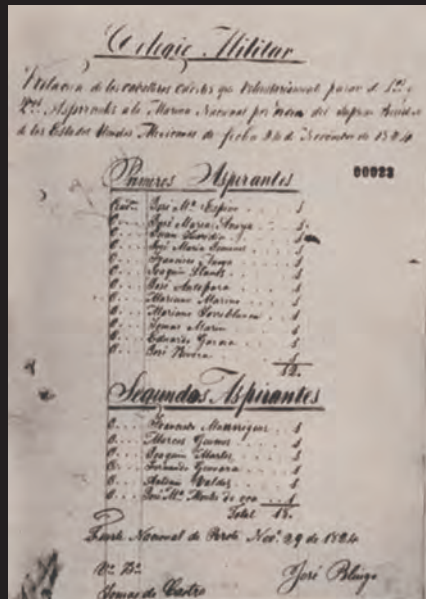 Colegio Militar
Relacion de los caballeros cadetes que voluntariamente pasan de 1os y
2os Aspirantes a la Marina Nacional por orden del Supremo
de los Estados Unidos Mexicanos de fecha de Noviembre de 1824
Primeros Aspirantes
00023
José Ma Espino 1
C. José Maria Anaya 1
C. Juan 1
C. José Maria 1
C. Francisco 1
C. Joaquin 1
C. José Antepara 1
C. Mariano Marino 1
C. Mariano Torreblanca 1
C. Tomas Marin 1
C. Eduardo Garcia 1
C. José Rivera 1
12.
Segundos Aspirantes
C. Fernando Manriquez 1
C. Marcos 1
C. Joaquin 1
C. Fernando Guevara 1
C. Antonio Valdes 1
C. José Ma Montes de oca 1
Total 18.
Fuerte Nacional de Perote Nove 29 de 1824
Vo Bo
José
Tomas de Castro